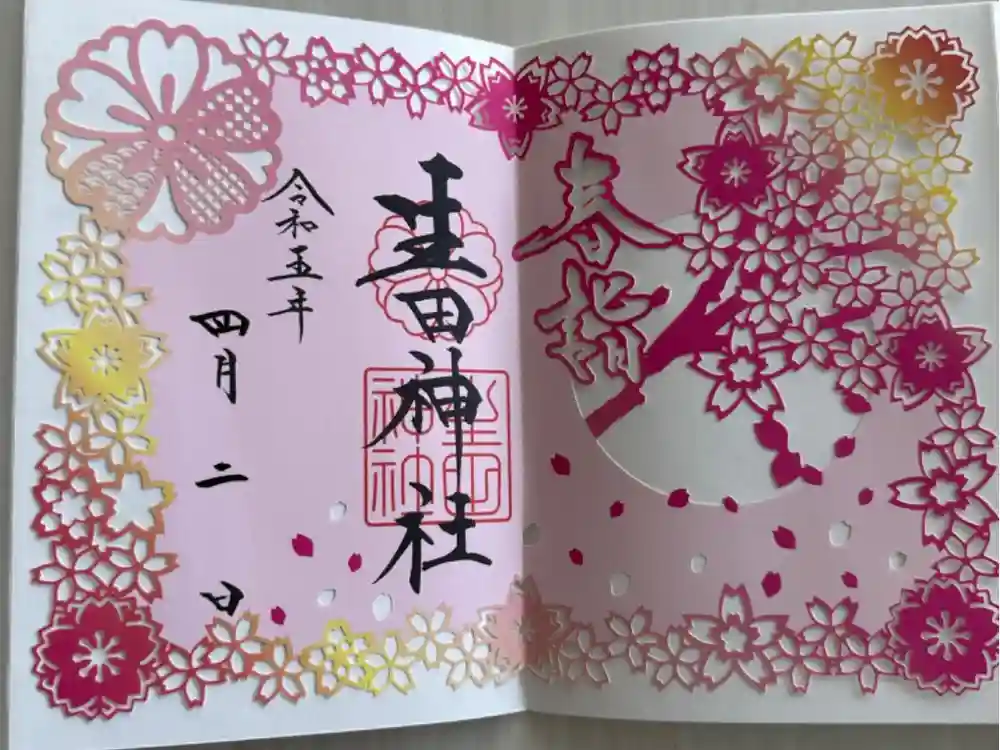 春詣
生田神社
生田神社
令和五年
四月二日